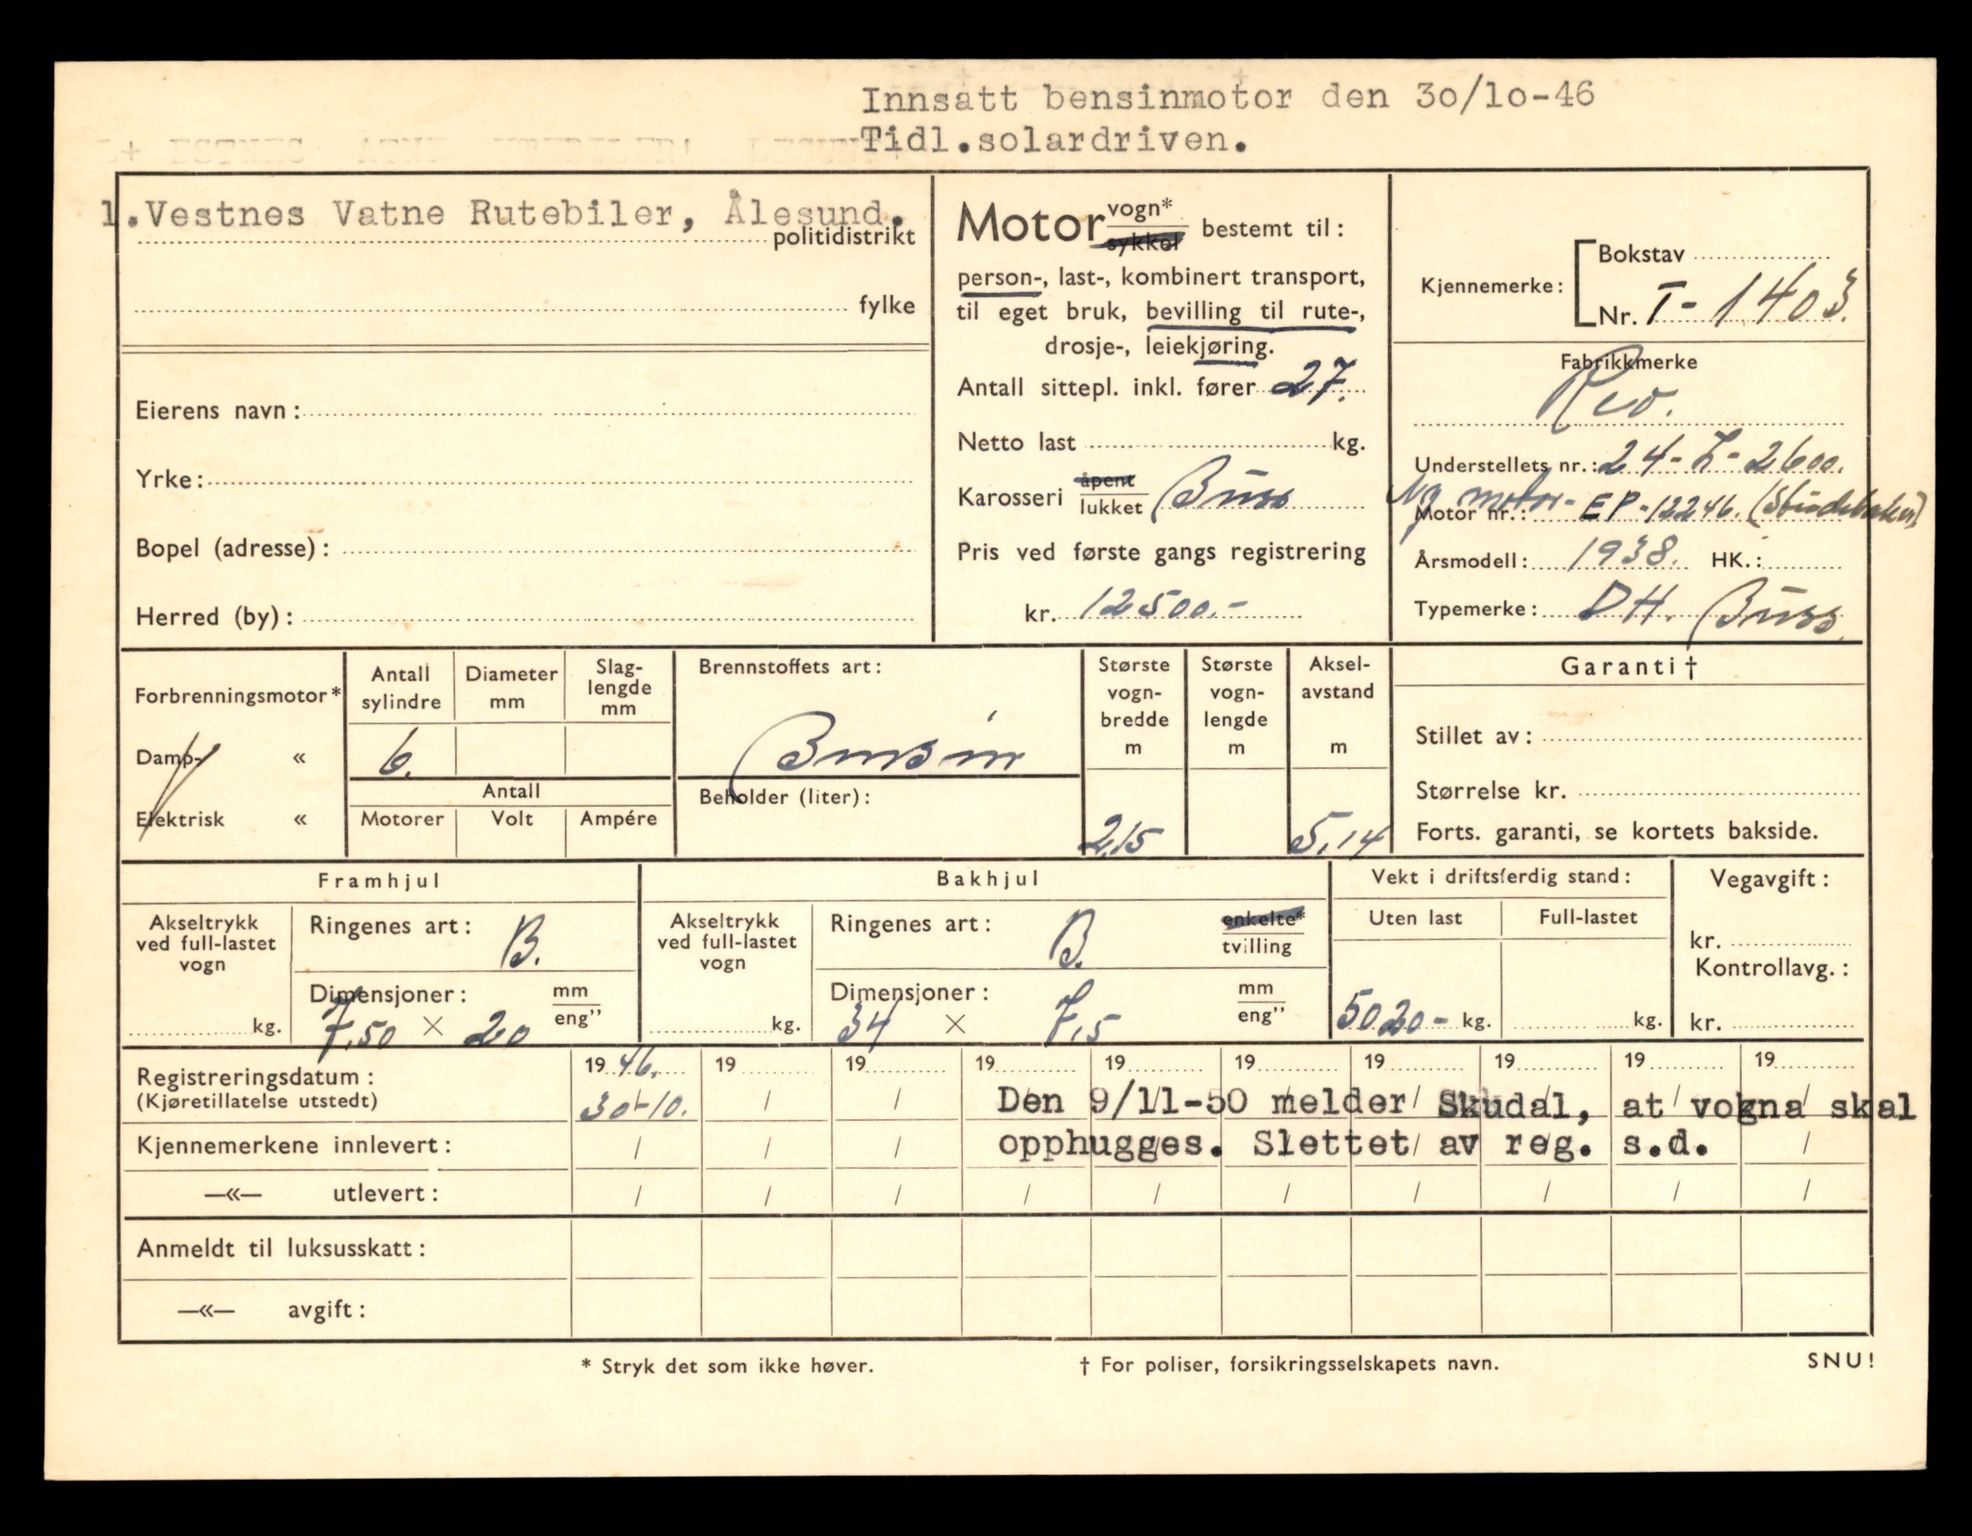 Innsatt bensinmotor den 30/10-46
Tidl.solardriven.
1.Vestnes Vatne Rutebiler, Ålesund.
politidistrikt
fylke
Eierens navn:
Yrke:
Bopel (adresse):
Herred (by):
Motor vogn* sykkel bestemt til:
person-, last-, kombinert transport,
til eget bruk, bevilling til rute-,
drosje-, leiekjøring.
Antall sittepl. inkl. fører 27.
Netto last kg.
Karosseri åpent lukket Buss
Pris ved første gangs registrering
kr. 12500.-
Kjennemerke: Bokstav
Nr. T-1403.
Fabrikkmerke
Reo.
Understellets nr.: 24-L-2600.
Ny motor-
Motor nr.: EP-12246. (Studebaker)
Årsmodell: 1938. HK.:
Typemerke: DH. Buss.
Forbrenningsmotor*
Damp- «
Elektrisk «
Antall sylindre
Diameter mm
Slag-lengde mm
6.
Antall
Motorer Volt Ampére
Brennstoffets art:
Bensin
Beholder (liter):
Største vogn-bredde m
2,15
Største vogn-lengde m
Aksel-avstand m
5,14
Garanti †
Stillet av:
Størrelse kr.
Forts. garanti, se kortets bakside.
Framhjul
Akseltrykk ved full-lastet vogn
kg.
Ringenes art: B.
Dimensjoner: mm eng"
7.50 × 20
Bakhjul
Akseltrykk ved full-lastet vogn
kg.
Ringenes art: B. enkelte* tvilling
Dimensjoner: mm eng"
34 × 7,5
Vekt i driftsferdig stand:
Uten last Full-lastet
5020- kg. kg.
Vegavgift:
kr.
Kontrollavg.:
kr.
Registreringsdatum: 19 46. 19 19 19 19 19 19 19 19 19
(Kjøretillatelse utstedt) 30-10. / / Den 9/11-50 melder Skudal, at vogna skal
Kjennemerkene innlevert: / / / opphugges. Slettet av reg. s.d. /
—«— utlevert: / / / / / / / / / /
Anmeldt til luksusskatt:
—«— avgift:
* Stryk det som ikke høver. † For poliser, forsikringsselskapets navn. SNU!